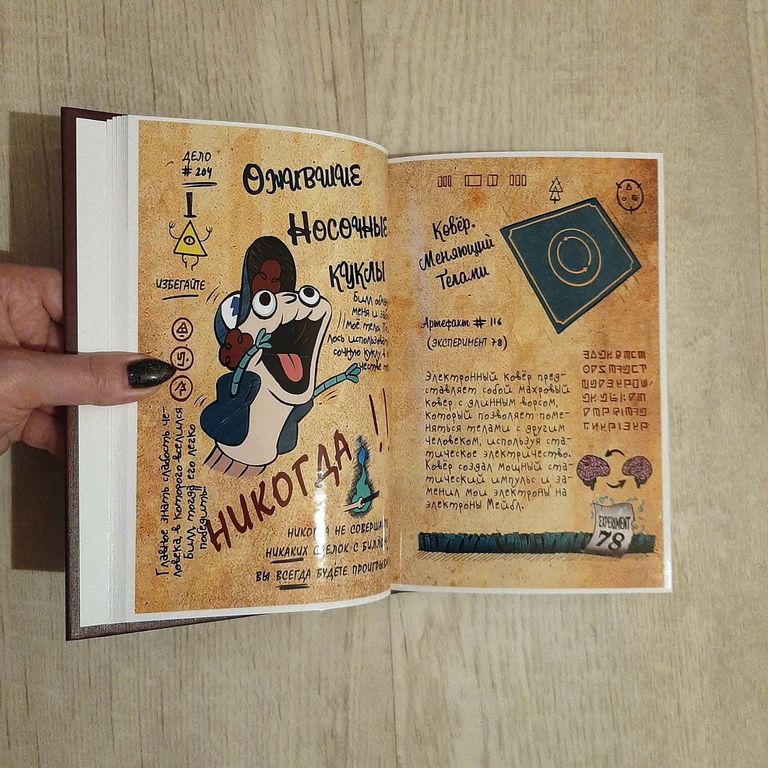 ДЕЛО
# 204
ИЗБЕГАЙТЕ
Ожившие
Носочные
куклы
Билл
меня и
моё тело.
лось использовать
сочную куклу в
честве
НИКОГДА!!
Главное знать слабость че-
ловека, в которого вселился
Билл, тогда его легко
победить!
НИКОГДА НЕ СОВЕРШАЙТЕ
НИКАКИХ СДЕЛОК С БИЛЛОМ
ВЫ ВСЕГДА БУДЕТЕ
Ковёр,
Меняющий
Телами
Артефакт # 116
(ЭКСПЕРИМЕНТ 78)
Электронный ковёр пред-
ставляет собой махровый
ковёр с длинным ворсом,
который позволяет поме-
няться телами с другим
человеком, используя ста-
тическое электричество.
Ковёр создал мощный ста-
тический импульс и за-
менил мои электроны на
электроны Мейбл.
EXPERIMENT
78